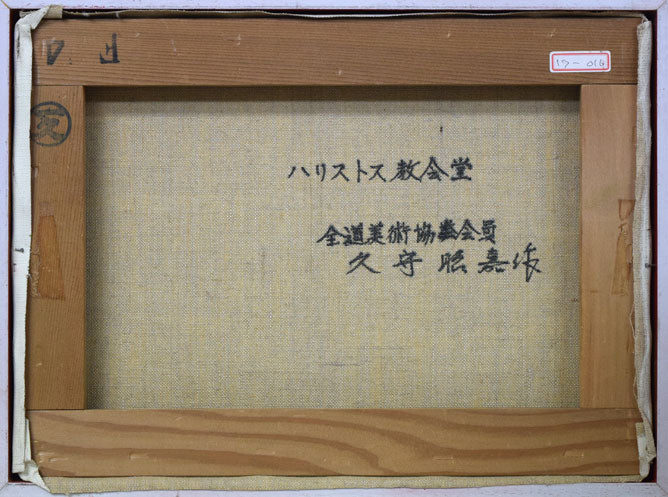 17-016
ハリストス教会堂
全道美術協会会員
久守昭嘉作